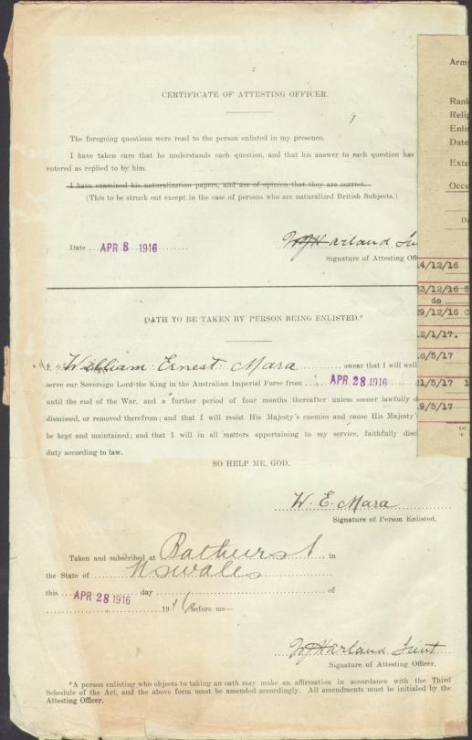 CERTIFICATE OF ATTESTING OFFICER.
The foregoing questions were read to the person enlisted in my presence.
I have taken care that he understands each question, and that his answer to each question has
entered as replied to by him.
I have examined his naturalization papers, and am of opinion that they are correct.
(This to be struck out except in the case of persons who are naturalized British Subjects.)
Date APR 8 1916
W J Harland Lu
Signature of Attesting Off
OATH TO BE TAKEN BY PERSON BEING ENLISTED.*
I, William Ernest Mara swear that I will well
serve our Sovereign Lord the King in the Australian Imperial Force from APR 28 1916
until the end of the War, and a further period of four months thereafter unless sooner lawfully d
dismissed, or removed therefrom; and that I will resist His Majesty's enemies and cause His Majesty'
be kept and maintained; and that I will in all matters appertaining to my service, faithfully disc
duty according to law.
SO HELP ME, GOD.
W. E. Mara
Signature of Person Enlisted.
Taken and subscribed at Bathurst in
the State of NSWales
this APR 28 1916 day of
1916 before me—
W J Harland Lieut
Signature of Attesting Officer.
*A person enlisting who objects to taking an oath may make an affirmation in accordance with the Third
Schedule of the Act, and the above form must be amended accordingly. All amendments must be initialed by the
Attesting Officer.
Arm
Rank
Relig
Enli
Date
Exte
Occu
4/12/16
3/12/16
do
9/12/16
2/1/17.
/5/17
1/5/17 1
9/5/17